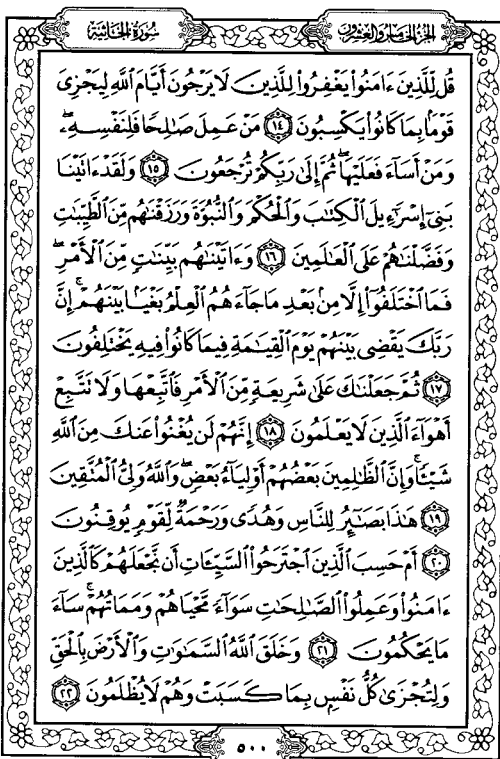 سُورَةُ الجَاثِيَةِ
الجُزْءُ الخَامِسُ وَالعِشْرُونَ
قُل لِّلَّذِينَ ءَامَنُوا۟ يَغْفِرُوا۟ لِلَّذِينَ لَا يَرْجُونَ أَيَّامَ ٱللَّهِ لِيَجْزِىَ
قَوْمًۢا بِمَا كَانُوا۟ يَكْسِبُونَ ١٤ مَنْ عَمِلَ صَـٰلِحًا فَلِنَفْسِهِۦ ۖ
وَمَنْ أَسَآءَ فَعَلَيْهَا ۖ ثُمَّ إِلَىٰ رَبِّكُمْ تُرْجَعُونَ ١٥ وَلَقَدْ ءَاتَيْنَا
بَنِىٓ إِسْرَٰٓءِيلَ ٱلْكِتَـٰبَ وَٱلْحُكْمَ وَٱلنُّبُوَّةَ وَرَزَقْنَـٰهُم مِّنَ ٱلطَّيِّبَـٰتِ
وَفَضَّلْنَـٰهُمْ عَلَى ٱلْعَـٰلَمِينَ ١٦ وَءَاتَيْنَـٰهُم بَيِّنَـٰتٍ مِّنَ ٱلْأَمْرِ ۖ
فَمَا ٱخْتَلَفُوٓا۟ إِلَّا مِنۢ بَعْدِ مَا جَآءَهُمُ ٱلْعِلْمُ بَغْيًۢا بَيْنَهُمْ ۚ إِنَّ
رَبَّكَ يَقْضِى بَيْنَهُمْ يَوْمَ ٱلْقِيَـٰمَةِ فِيمَا كَانُوا۟ فِيهِ يَخْتَلِفُونَ
١٧ ثُمَّ جَعَلْنَـٰكَ عَلَىٰ شَرِيعَةٍ مِّنَ ٱلْأَمْرِ فَٱتَّبِعْهَا وَلَا تَتَّبِعْ
أَهْوَآءَ ٱلَّذِينَ لَا يَعْلَمُونَ ١٨ إِنَّهُمْ لَن يُغْنُوا۟ عَنكَ مِنَ ٱللَّهِ
شَيْـًٔا ۚ وَإِنَّ ٱلظَّـٰلِمِينَ بَعْضُهُمْ أَوْلِيَآءُ بَعْضٍ ۖ وَٱللَّهُ وَلِىُّ ٱلْمُتَّقِينَ
١٩ هَـٰذَا بَصَـٰٓئِرُ لِلنَّاسِ وَهُدًى وَرَحْمَةٌ لِّقَوْمٍ يُوقِنُونَ
٢٠ أَمْ حَسِبَ ٱلَّذِينَ ٱجْتَرَحُوا۟ ٱلسَّيِّـَٔاتِ أَن نَّجْعَلَهُمْ كَٱلَّذِينَ
ءَامَنُوا۟ وَعَمِلُوا۟ ٱلصَّـٰلِحَـٰتِ سَوَآءً مَّحْيَاهُمْ وَمَمَاتُهُمْ ۚ سَآءَ
مَا يَحْكُمُونَ ٢١ وَخَلَقَ ٱللَّهُ ٱلسَّمَـٰوَٰتِ وَٱلْأَرْضَ بِٱلْحَقِّ
وَلِتُجْزَىٰ كُلُّ نَفْسٍۭ بِمَا كَسَبَتْ وَهُمْ لَا يُظْلَمُونَ ٢٢
٥٠٠